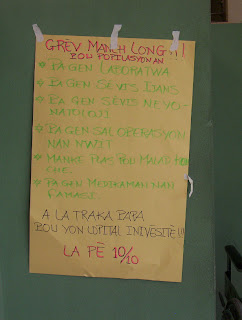 GRÈV MANCH LONG!!!
POU POPILASYON AN
PA GEN LABORATWA
PA GEN SÈVIS IJANS
PA GEN SÈVIS NEYO-
NATOLO))
PA GEN SAL OPERASYON
NAN NWIT
MANKE PLAS POU MALAD
CHE.
PA GEN MEDIKAMAN NAN
FAMASI.
A LA TRAKA PAPA
POU YON LOPITAL INIVÈSITÈ!!!
LA PÈ 10/10